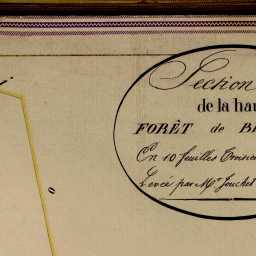 Section
de la hau
FORÊT de B
En 10 feuilles Troisiè
Levée par Mr. Jouchet
o